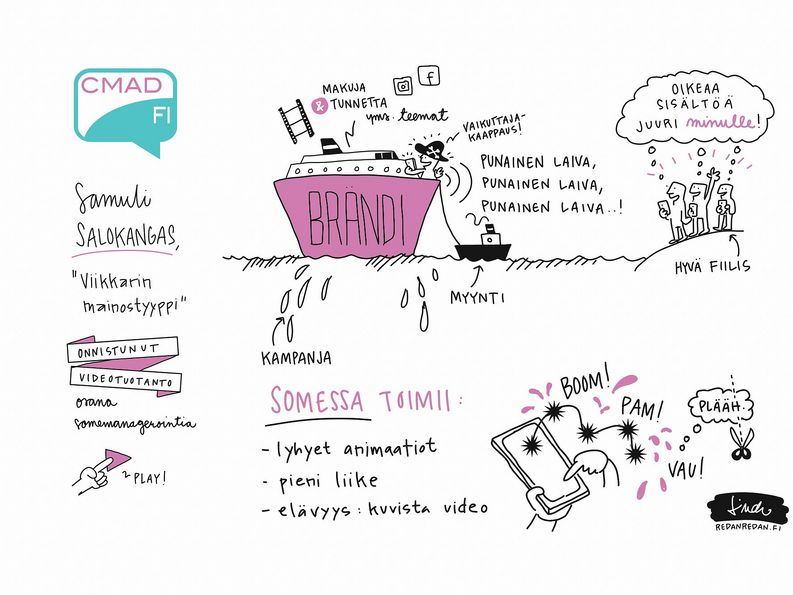 CMAD
FI
Samuli
SALOKANGAS,
"Viikkarin
mainostyyppi"
ONNISTUNUT
VIDEOTUOTANTO
osana
somemanagerointia
PLAY!
MAKUJA
& TUNNETTA
yms. teemat
f
VAIKUTTAJA-
KAAPPAUS!
PUNAINEN LAIVA,
PUNAINEN LAIVA,
PUNAINEN LAIVA..!
BRÄNDI
MYYNTI
KAMPANJA
OIKEAA
SISÄLTÖÄ
JUURI minulle!
HYVÄ FIILIS
SOMESSA TOIMII:
- lyhyet animaatiot
- pieni liike
- elävyys: kuvista video
BOOM!
PAM!
VAU!
PLÄÄH.
REDANREDAN.FI